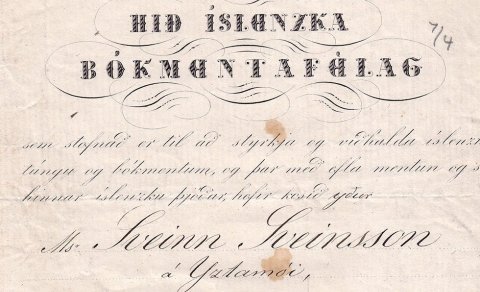 HIÐ ÍSLENZKA
7/4
BÓKMENTAFÉLAG
sem stofnað er til að styrkja og viðhalda íslenzk
túngu og bókmentum, og þar með efla mentun og s
hinnar íslenzku þjóðar, hefir kosið yður
Mr. Sveinn Sveinsson
á Yztamói,